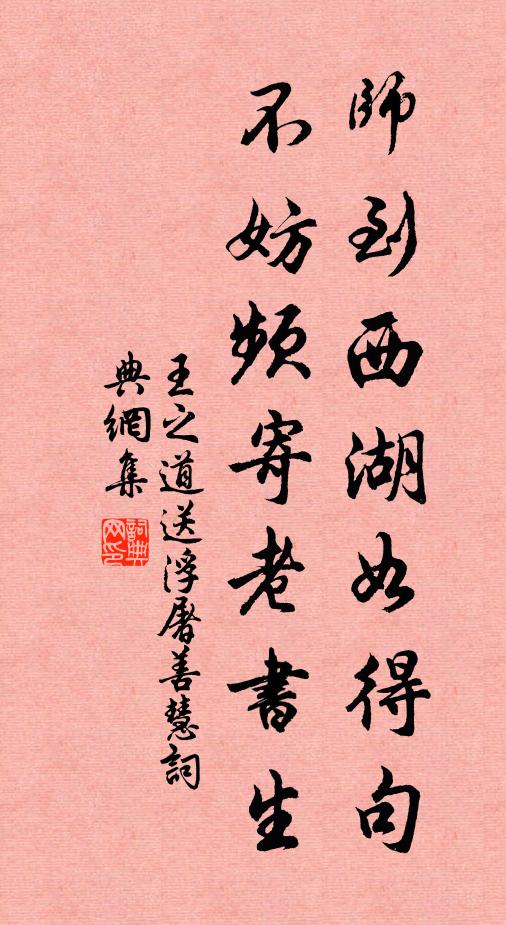 師到西湖如得句
不妨頻寄老書生
王之道送浮屠善慧詞
典網集
詞典網印